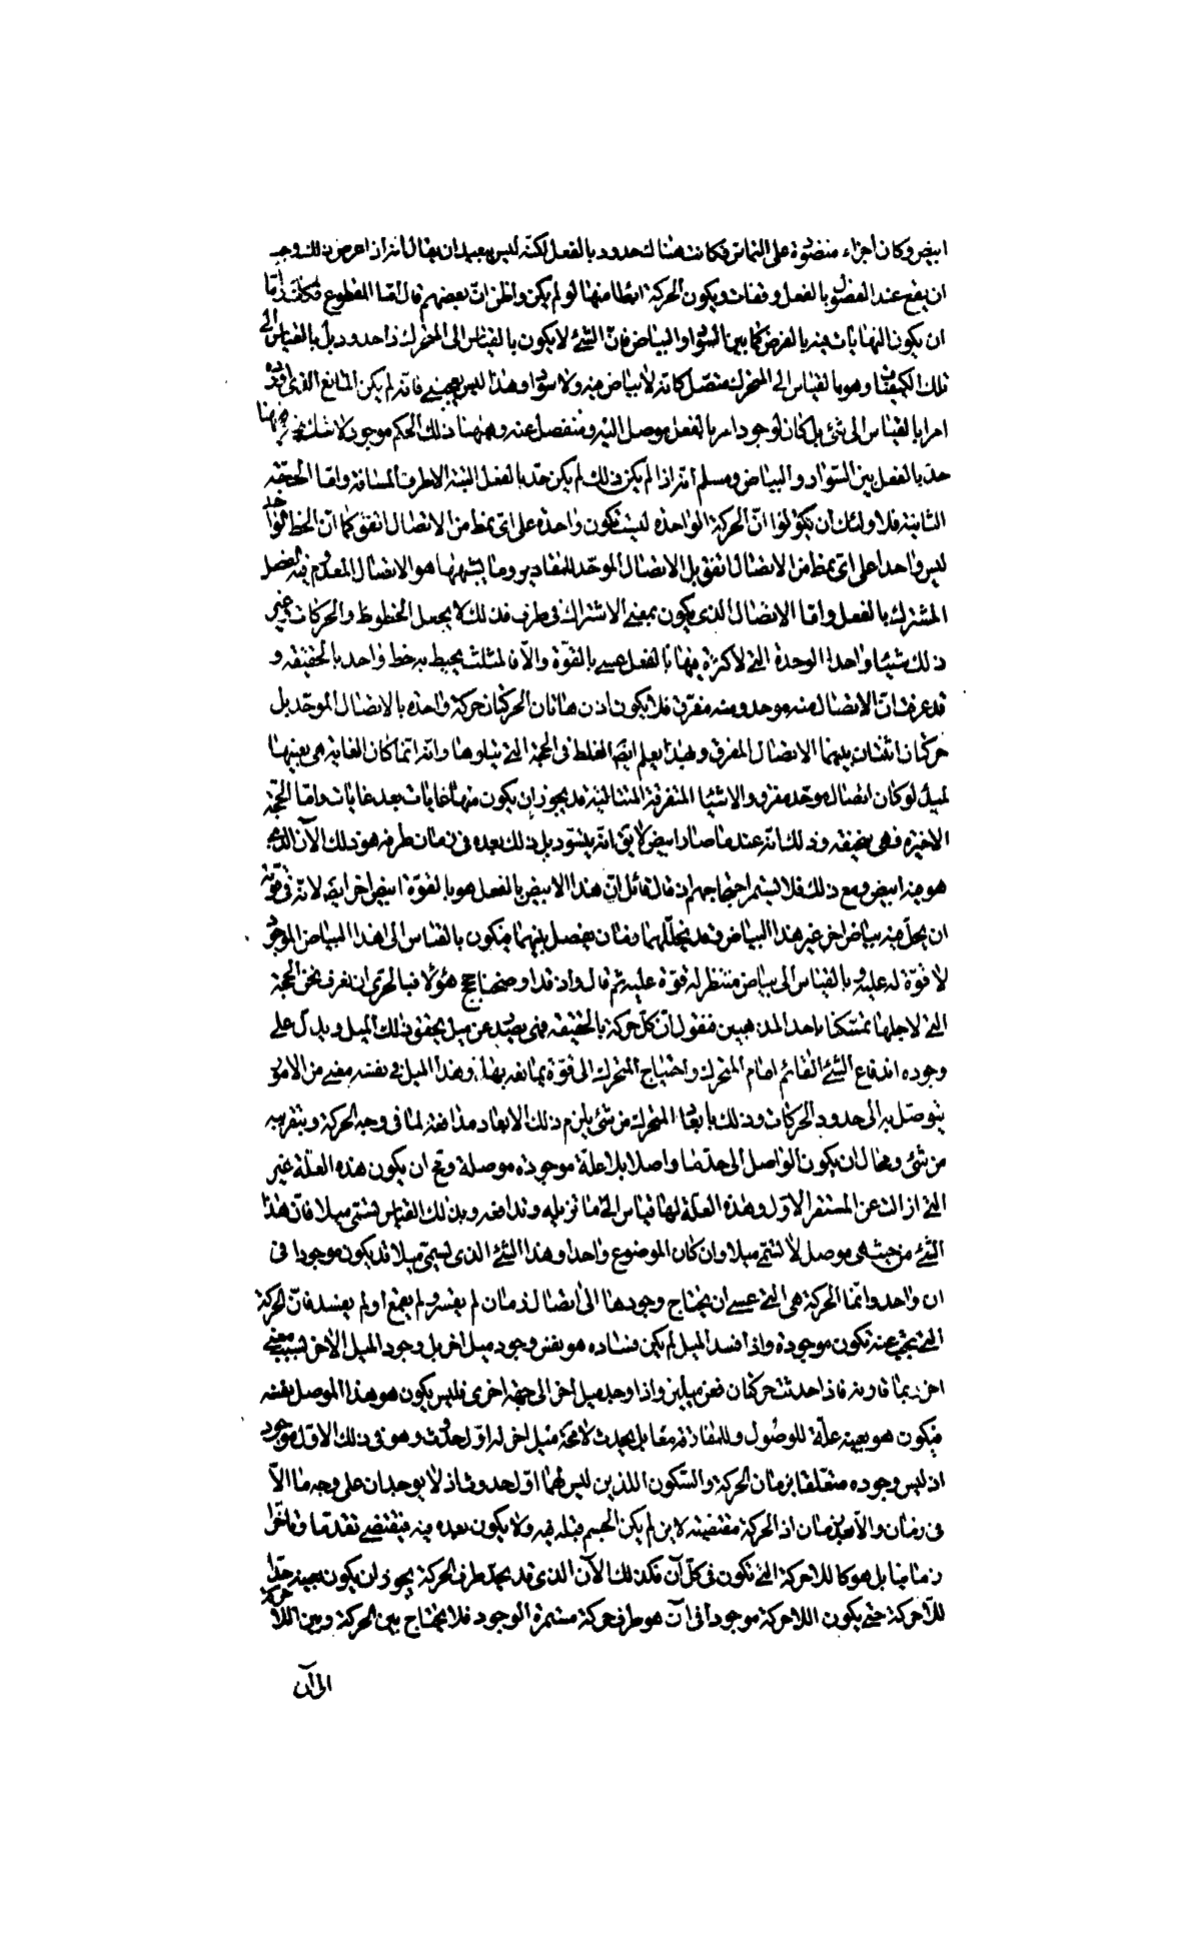 ابيض وكان أجزاء منضودة على التماس فكانت هناك حدود بالفعل لكنه ليس ببعيد ان يقال انه اذا عرض ذلك وجب
ان يقع عند الفصول بالفعل وقفات ويكون الحركة ابطأ منها لو لم يكن واظن ان بعضهم قال اما المقطوع
ان يكون النهايات فيه بالعرض كما بين السواد والبياض فان الشئ لا يكون بالقياس الى المتحرك ذا حدود بل بالقياس الى
تلك الكيفيات وهو بالقياس الى المتحرك متصل كانه لا بياض فيه ولا سواد وهذا ليس يعجبنى فانه لم يكن المانع الذى
امرا بالقياس الى شئ بل كان لوجود امر بالفعل موصل اليه ومنفصل عنه وههنا ذلك الحكم موجود لا شك
حد بالفعل بين السواد والبياض ومسلم انه اذا لم يكن ذلك لم يكن حد بالفعل البتة الا طرف المسافة واما الحجة
الثانية فلاولئك ان يقولوا ان الحركة الواحدة ليست تكون واحدة على اى نمط من الاتصال اتفق كما ان الخط الواحد
ليس واحدا على اى نمط من الاتصال اتفق بل الاتصال الموحد للمقادير وما يشبهها هو الاتصال المعدوم فيه الفصل
المشترك بالفعل واما الاتصال الذى يكون بمعنى الاشتراك فى طرف فذلك لا يجعل الخطوط والحركات وغير
ذلك شيئا واحدا الوحدة التى لا كثرة فيها بالفعل عسى بالقوة والا فالمثلث يحيط به خط واحد بالحقيقة و
قد عرفت ان الاتصال منه موحد ومنه مفرق فلا يكون اذن هاتان الحركتان حركة واحدة بالاتصال الموحد بل
حركتان اثنتان بينهما الاتصال المفرق وبهذا يعلم ايضا الغلط فى الحجة التى يتلوها وانه انما كان الغاية هى بعينها
لمبدئ لو كان اتصال موحد مفرق والاشياء المتفرقة المتتالية قد يجوز ان يكون منها غايات بعد غايات واما الحجة
الاخيرة فهى ضعيفة وذلك انه عند ما صار ابيض لا يق انه يتسود بل ذلك بعده فى زمان طرفه هو ذلك الآن الذى
هو فيه ابيض ومع ذلك فلا يستمر احتجاجهم ان قال قائل ان هذا الابيض بالفعل هو بالقوة ابيض اخر ايض لانه فى قوته
ان يحل فيه بياض اخر غير هذا البياض فقد يتخللهما زمان يفصل بينهما فيكون بالقياس الى هذا البياض الموجود
لا قوة له عليه وبالقياس الى بياض منتظر له قوة عليه ثم قال واذ قد اوضحنا حجج هؤلاء فبالحرى ان نعرف نحن الحجة
التى لاجلها تمسكنا باحد المذهبين فنقول ان كل حركة بالحقيقة فهى يصدر عن ميل يحققه ذلك الميل ويدل على
وجوده اندفاع الشئ القائم امام المتحرك واحتياج المتحرك الى قوة يمانعه بها وهذا الميل فى نفسه معنى من الامور
يتوصل به الى حدود الحركات وذلك بابعاد المتحرك من شئ يلزم ذلك الابعاد مدافعة لما فى وجه الحركة وبتقريبه
من شئ ومحال ان يكون الواصل الى حد ما واصلا بلا علة موجودة موصلة ومح ان يكون هذه العلة غير
التى ازالت عن المستقر الاول وهذه العلة لها قياس الى ما تزيله وتدافعه وبذلك القياس تسمى ميلا فان هذا
الشئ من حيث هى موصل لا تسمى ميلا وان كان الموضوع واحدا وهذا الشئ الذى تسمى ميلا قد يكون موجودا فى
ان واحد وانما الحركة هى التى عسى ان يحتاج وجودها الى اتصال زمان لم يقسر ولم يقمع او لم يفسد فان الحركة
التى تجئ عنه تكون موجودة واذا فسد الميل لم يكن فساده هو نفس وجود ميل اخر بل وجود الميل الاخر لسبب معنى
اخر ربما قارنه فاذا حدثت حركتان فعن ميلين واذا وجد ميل اخر الى جهة اخرى فليس يكون هو هذا الموصل نفسه
فيكون هو بعينه علة للوصول وللمفارقة معا بل يحدث لا محة ميل اخر له اول حدوث وهو فى ذلك الاول موجود
اذ ليس وجوده متعلقا بزمان الحركة والسكون اللذين ليس لهما اول حدوث اذ لا يوجدان على وجه ما الا
فى زمان والا بعد زمان اذ الحركة مقتضية لاين لم يكن الجسم قبله فيه ولا يكون بعده فيه فيقتضى تقدما وتاخرا
زمانيا بل هو كاللاحركة التى تكون فى كل آن فكذلك الآن الذى قد يحد طرف الحركة يجوز ان يكون بعينه حدا
للاحركة حتى يكون اللاحركة موجودا فى آن هو طرف حركة مستمرة الوجود فلا يحتاج بين الحركة وبين اللاحركة
الى آن